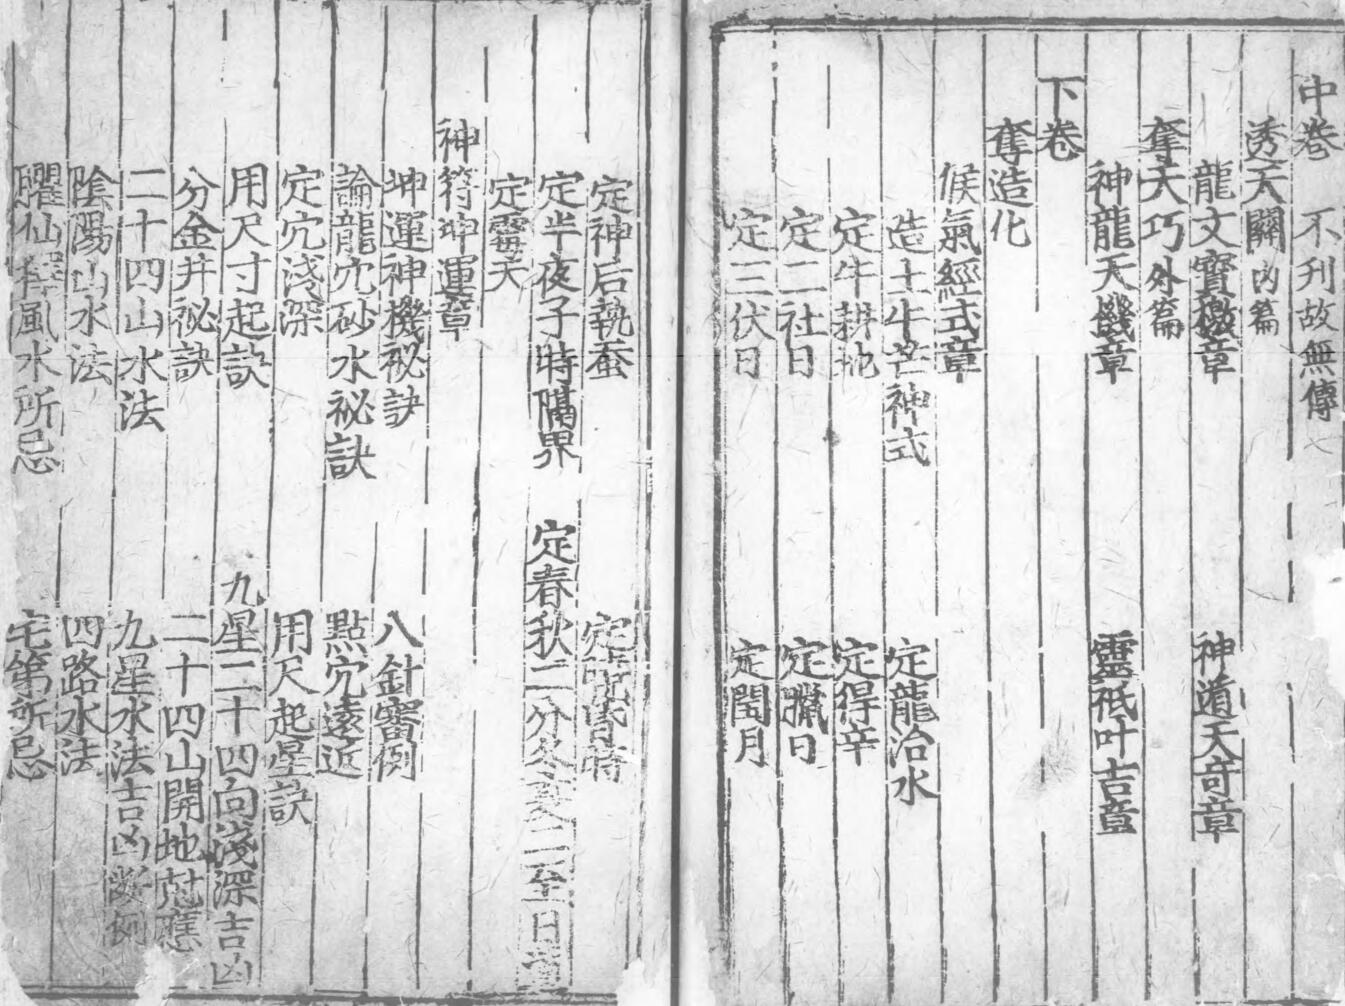 中卷 不刋故無傳
透天關內篇
龍文寶檄章 神道天奇章
奪天巧外篇
神龍天機章 靈祇叶吉章
下卷
奪造化
候氣經式章
造土牛芒神式 定龍治水
定牛耕地 定得辛
定二社日 定臘日
定三伏日 定閏月
定神后執蚕 定 昏時
定半夜子時隔界 定春秋二分冬夏二至日
定霉天
神符坤運章
坤運神機祕訣 八針審例
論龍穴砂水祕訣 點穴遠近
定穴淺深 用尺起星訣
用尺寸起訣 九星二十四向淺深吉凶
分金井祕訣 二十四山開地尅應
二十四山水法 九星水法吉凶断例
陰陽山水法 四路水法
臞仙擇風水所忌 宅第所忌